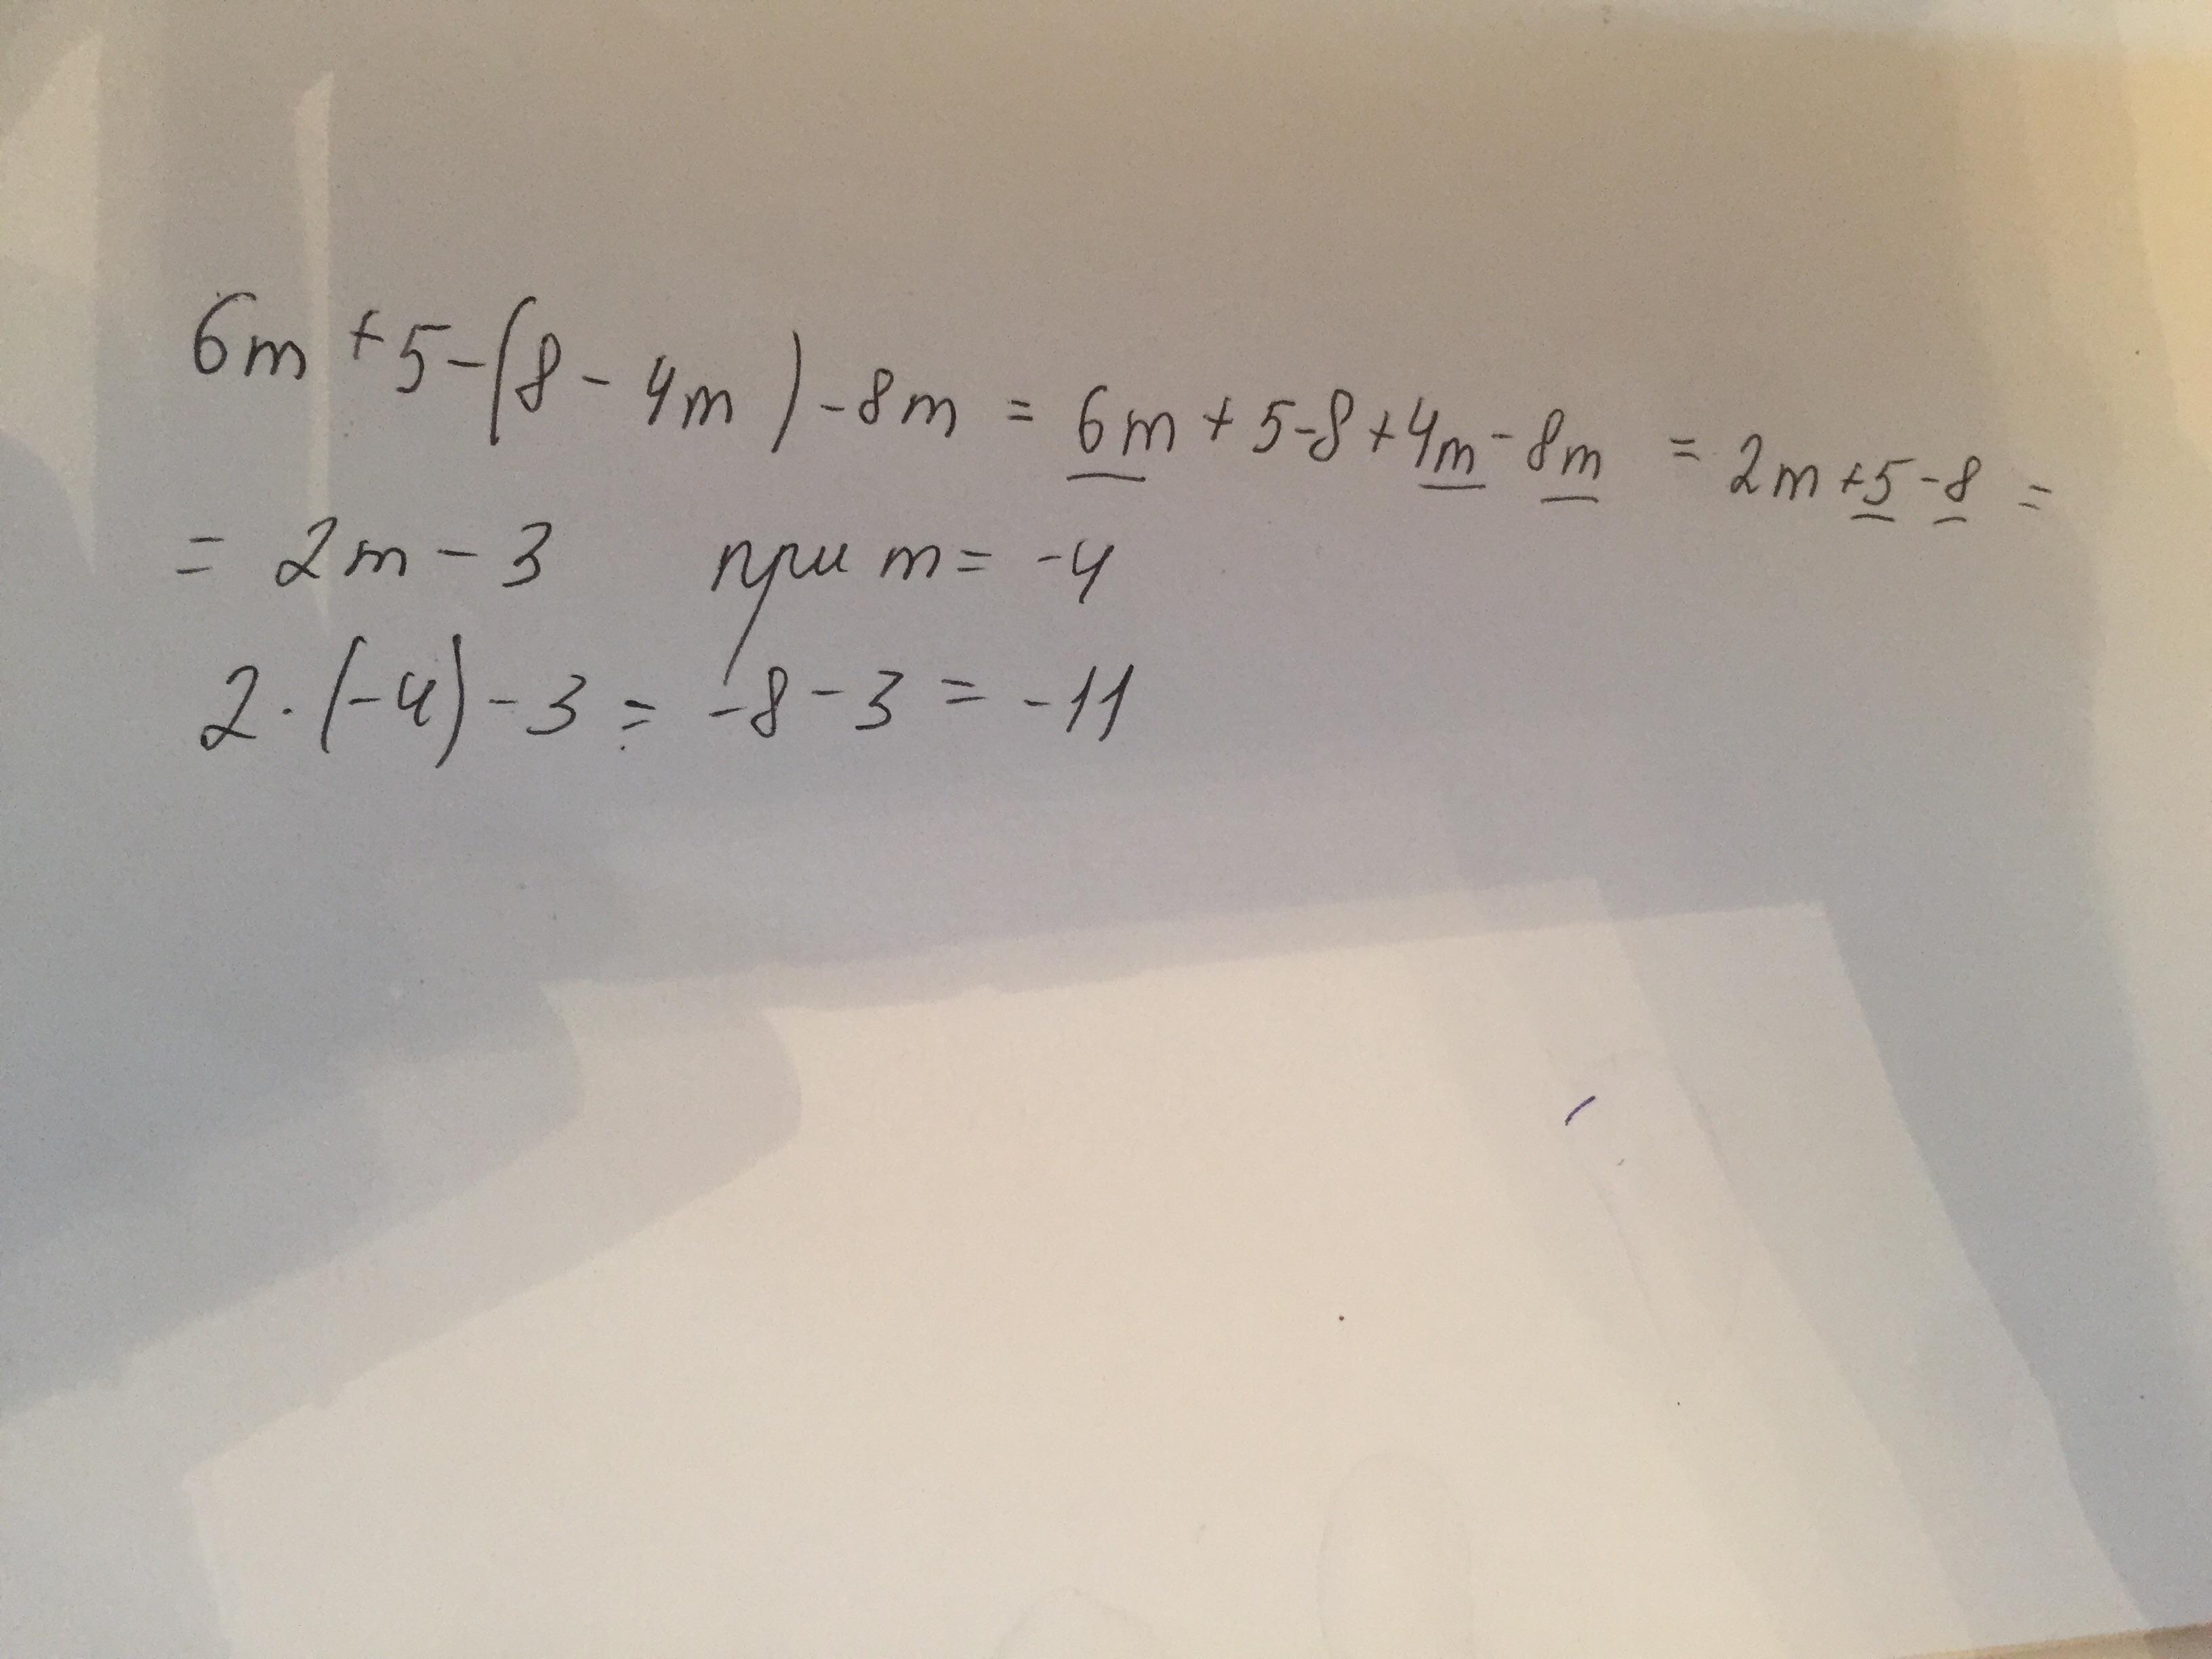 6m + 5 - (8 - 4m) - 8m = 6m + 5 - 8 + 4m - 8m = 2m + 5 - 8 =
= 2m - 3 при m = -4
2 · (-4) - 3 = -8 - 3 = -11